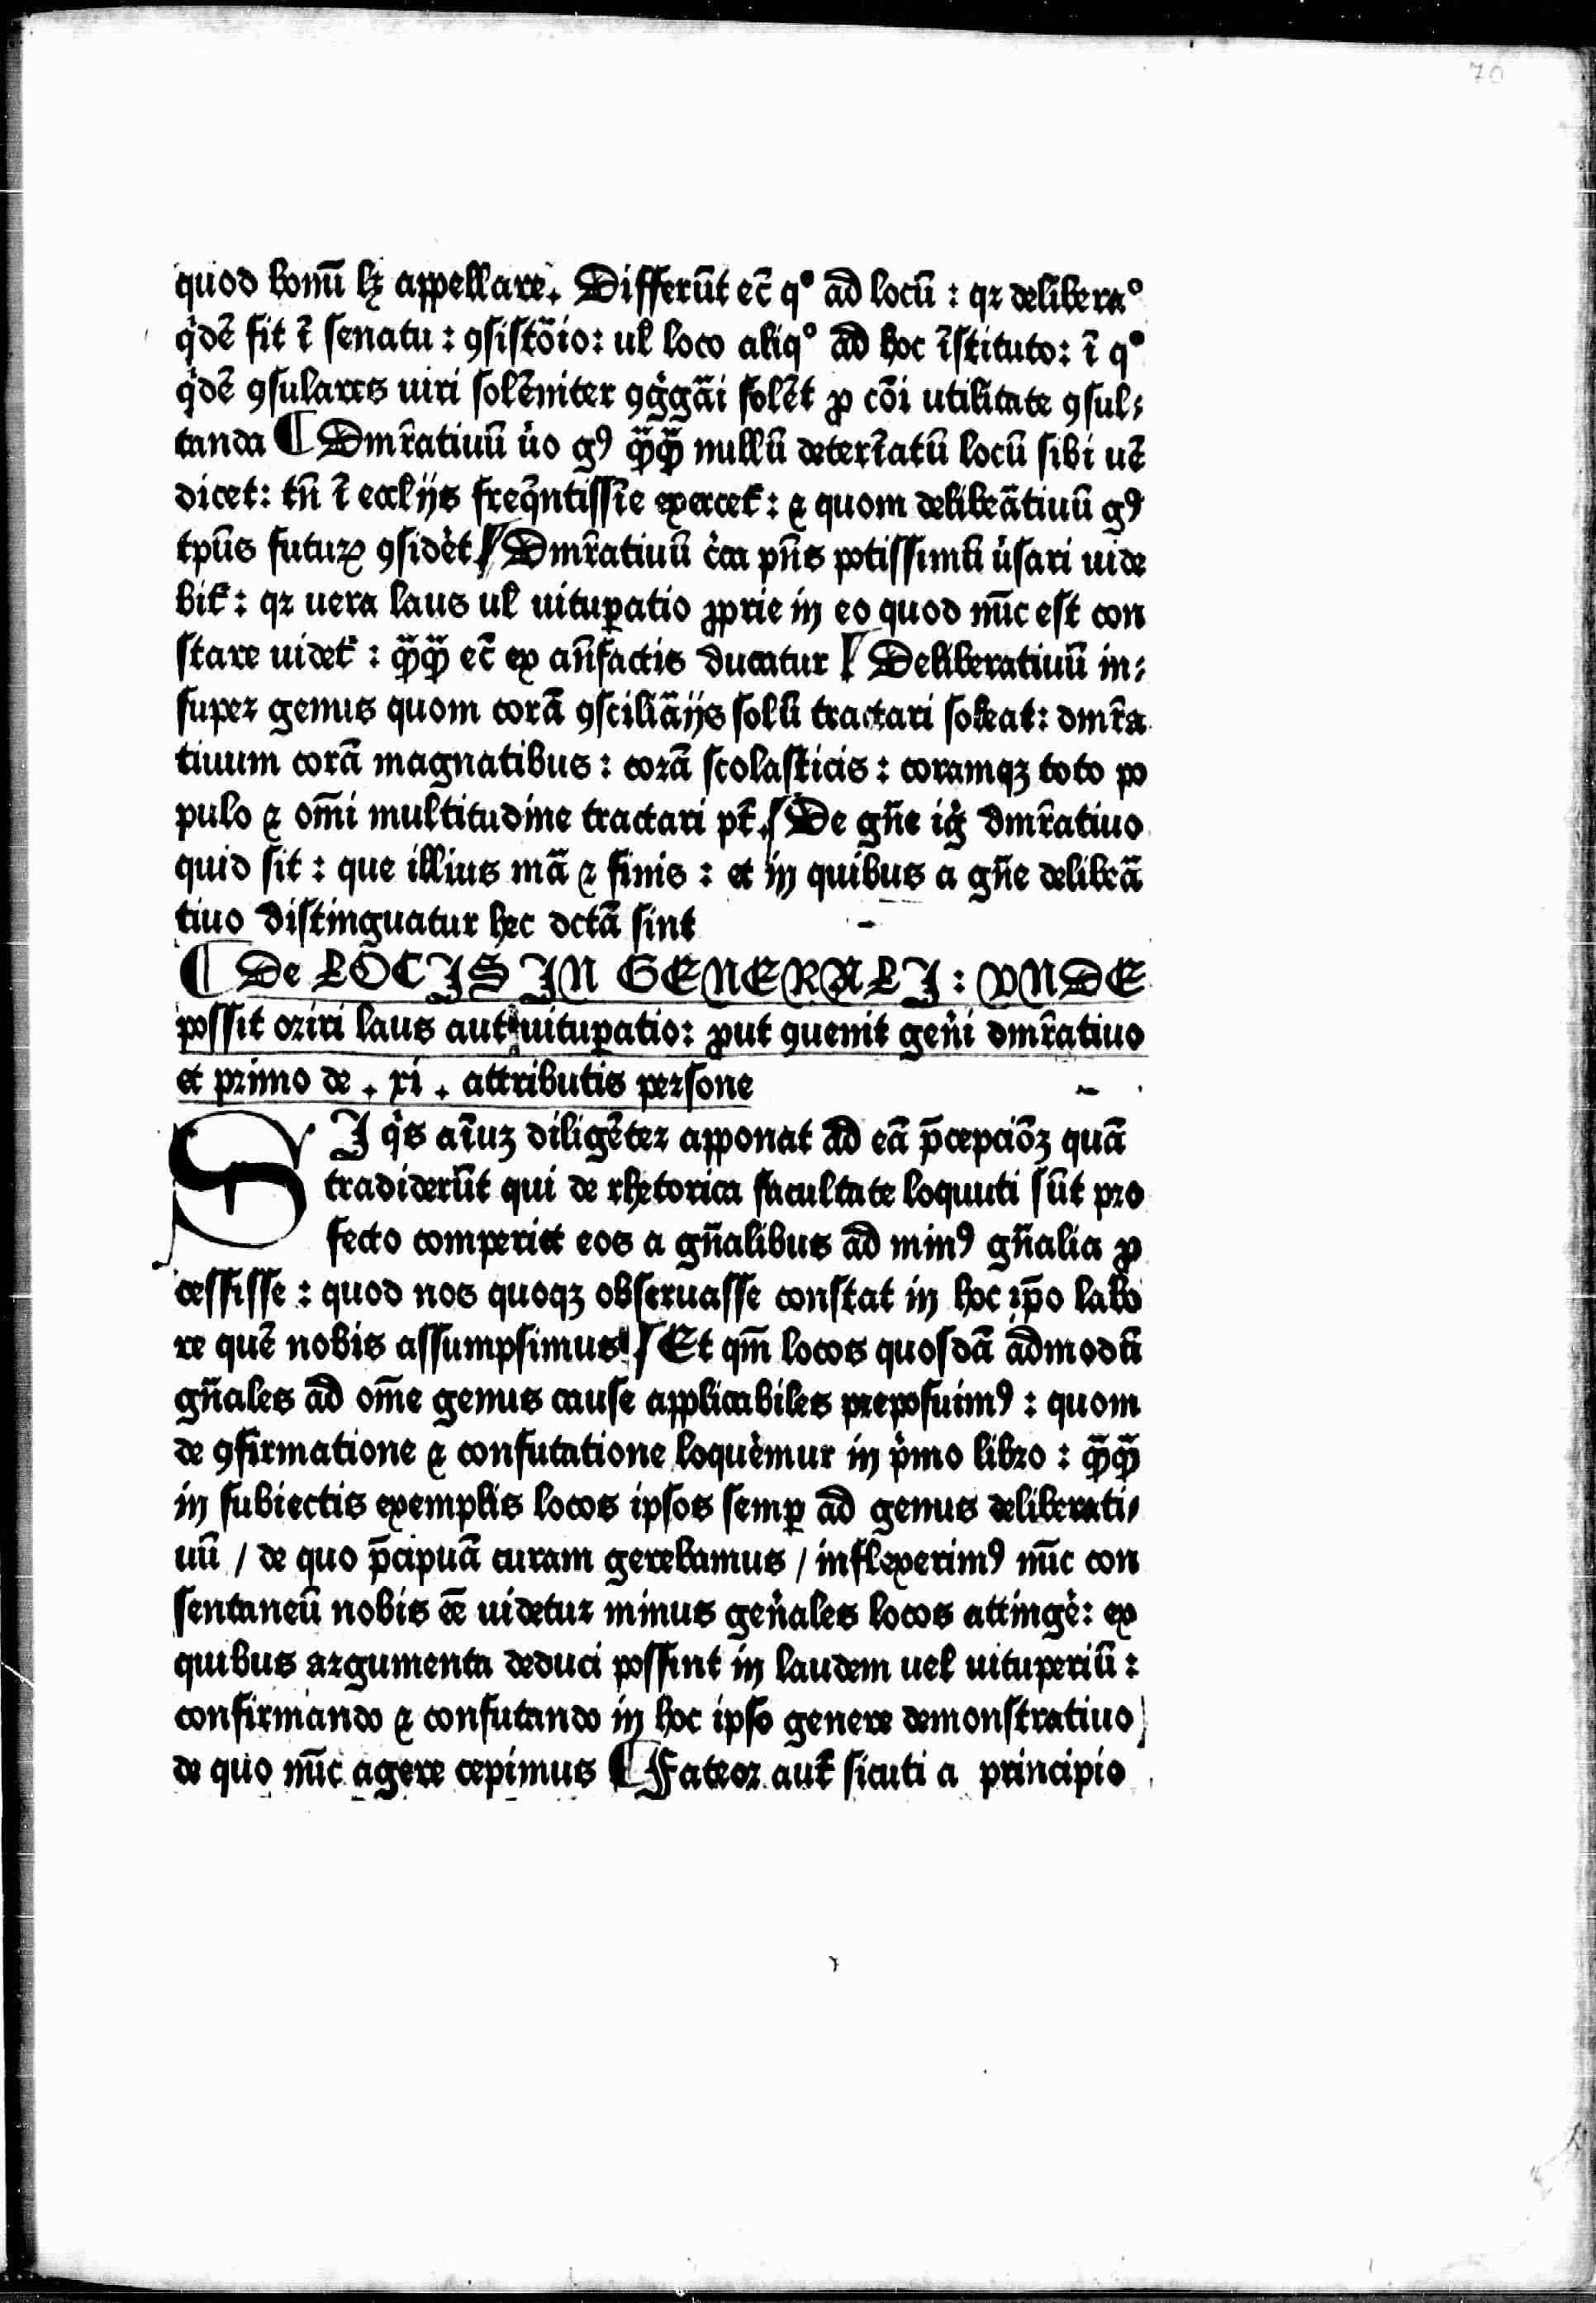 70
quod bonū lꝫ appellare. Differūt ec̄ q° ad locū : qꝛ delibera°
q̇dē fit ī senatu : ꝯsistōio : ul loco aliq° ad hoc īstituto : ī q°
q̇dē ꝯsulares uiri solēniter ꝯg̊gāi solēt ꝓ cōi utilitate ꝯsul⸗
tanda ¶ Dmr̄atiuū u̇o gꝰ qͣ̄ꝙ nullū deterīatū locū sibi uē
dicet : tn̄ ī eccl̄ijs freq̄ntissīe exercet᷑ : ⁊ quom delibeᷓtiuū gꝰ
tpūs futuꝝ ꝯsidėt / Dmr̄atiuū ċca pn̄s potissimū u̇sari uide
bit᷑ : qꝛ uera laus ul uituꝑatio ꝓprie in eo quod nūc est con
stare uidet᷑ : ꝙ̄ꝙ̄ ec̄ ex an̄factis ducatur / Deliberatiuū in⸗
super genus quom corā ꝯsciliāijs solū tractari soleat : dmr̄a
tiuum corā magnatibus : corā scolasticis : coramqꝫ toto po
pulo ⁊ om̄i multitudine tractari pt̄. / De gn̄e ig̊ dmr̄atiuo
quid sit : que illius mā ⁊ finis : et in quibus a gn̄e delibeā
tiuo distinguatur hec dctā sint
¶ De LOCIS IN GENERALI : VNDE
possit oriri laus aut uituꝑatio : ꝓut ꝯuenit gen̄i dmr̄atiuo
et primo de . xi . attributis persone
SI q̇s aīuꝫ diligēter apponat ad eā p̄cepciōꝫ quā
tradiderūt qui de rhetorica facultate loquuti sūt pro
fecto comperiet eos a gn̄alibus ad minꝰ gn̄alia ꝓ
cessisse : quod nos quoqꝫ obseruasse constat in hoc ip̄o labo
re quē nobis assumpsimus / Et qm̄ locos quosdā admodū
gn̄ales ad om̄e genus cause applicabiles preposuimꝰ : quom
de ꝯfirmatione ⁊ confutatione loquėmur in p̊mo libro : ꝙ̄ꝙ̄
in subiectis exemplis locos ipsos semꝑ ad genus deliberati⸗
uū / de quo p̄cipuā curam gerebamus / inflexerimꝰ nūc con
sentaneū nobis ēē uidetur minus gen̄ales locos attingė : ex
quibus argumenta deduci possint in laudem uel uituperiū :
confirmando ⁊ confutando in hoc ipso genere demonstratiuo
de quo nūc agere cepimus ¶ Fateor aut̄ sicuti a principio